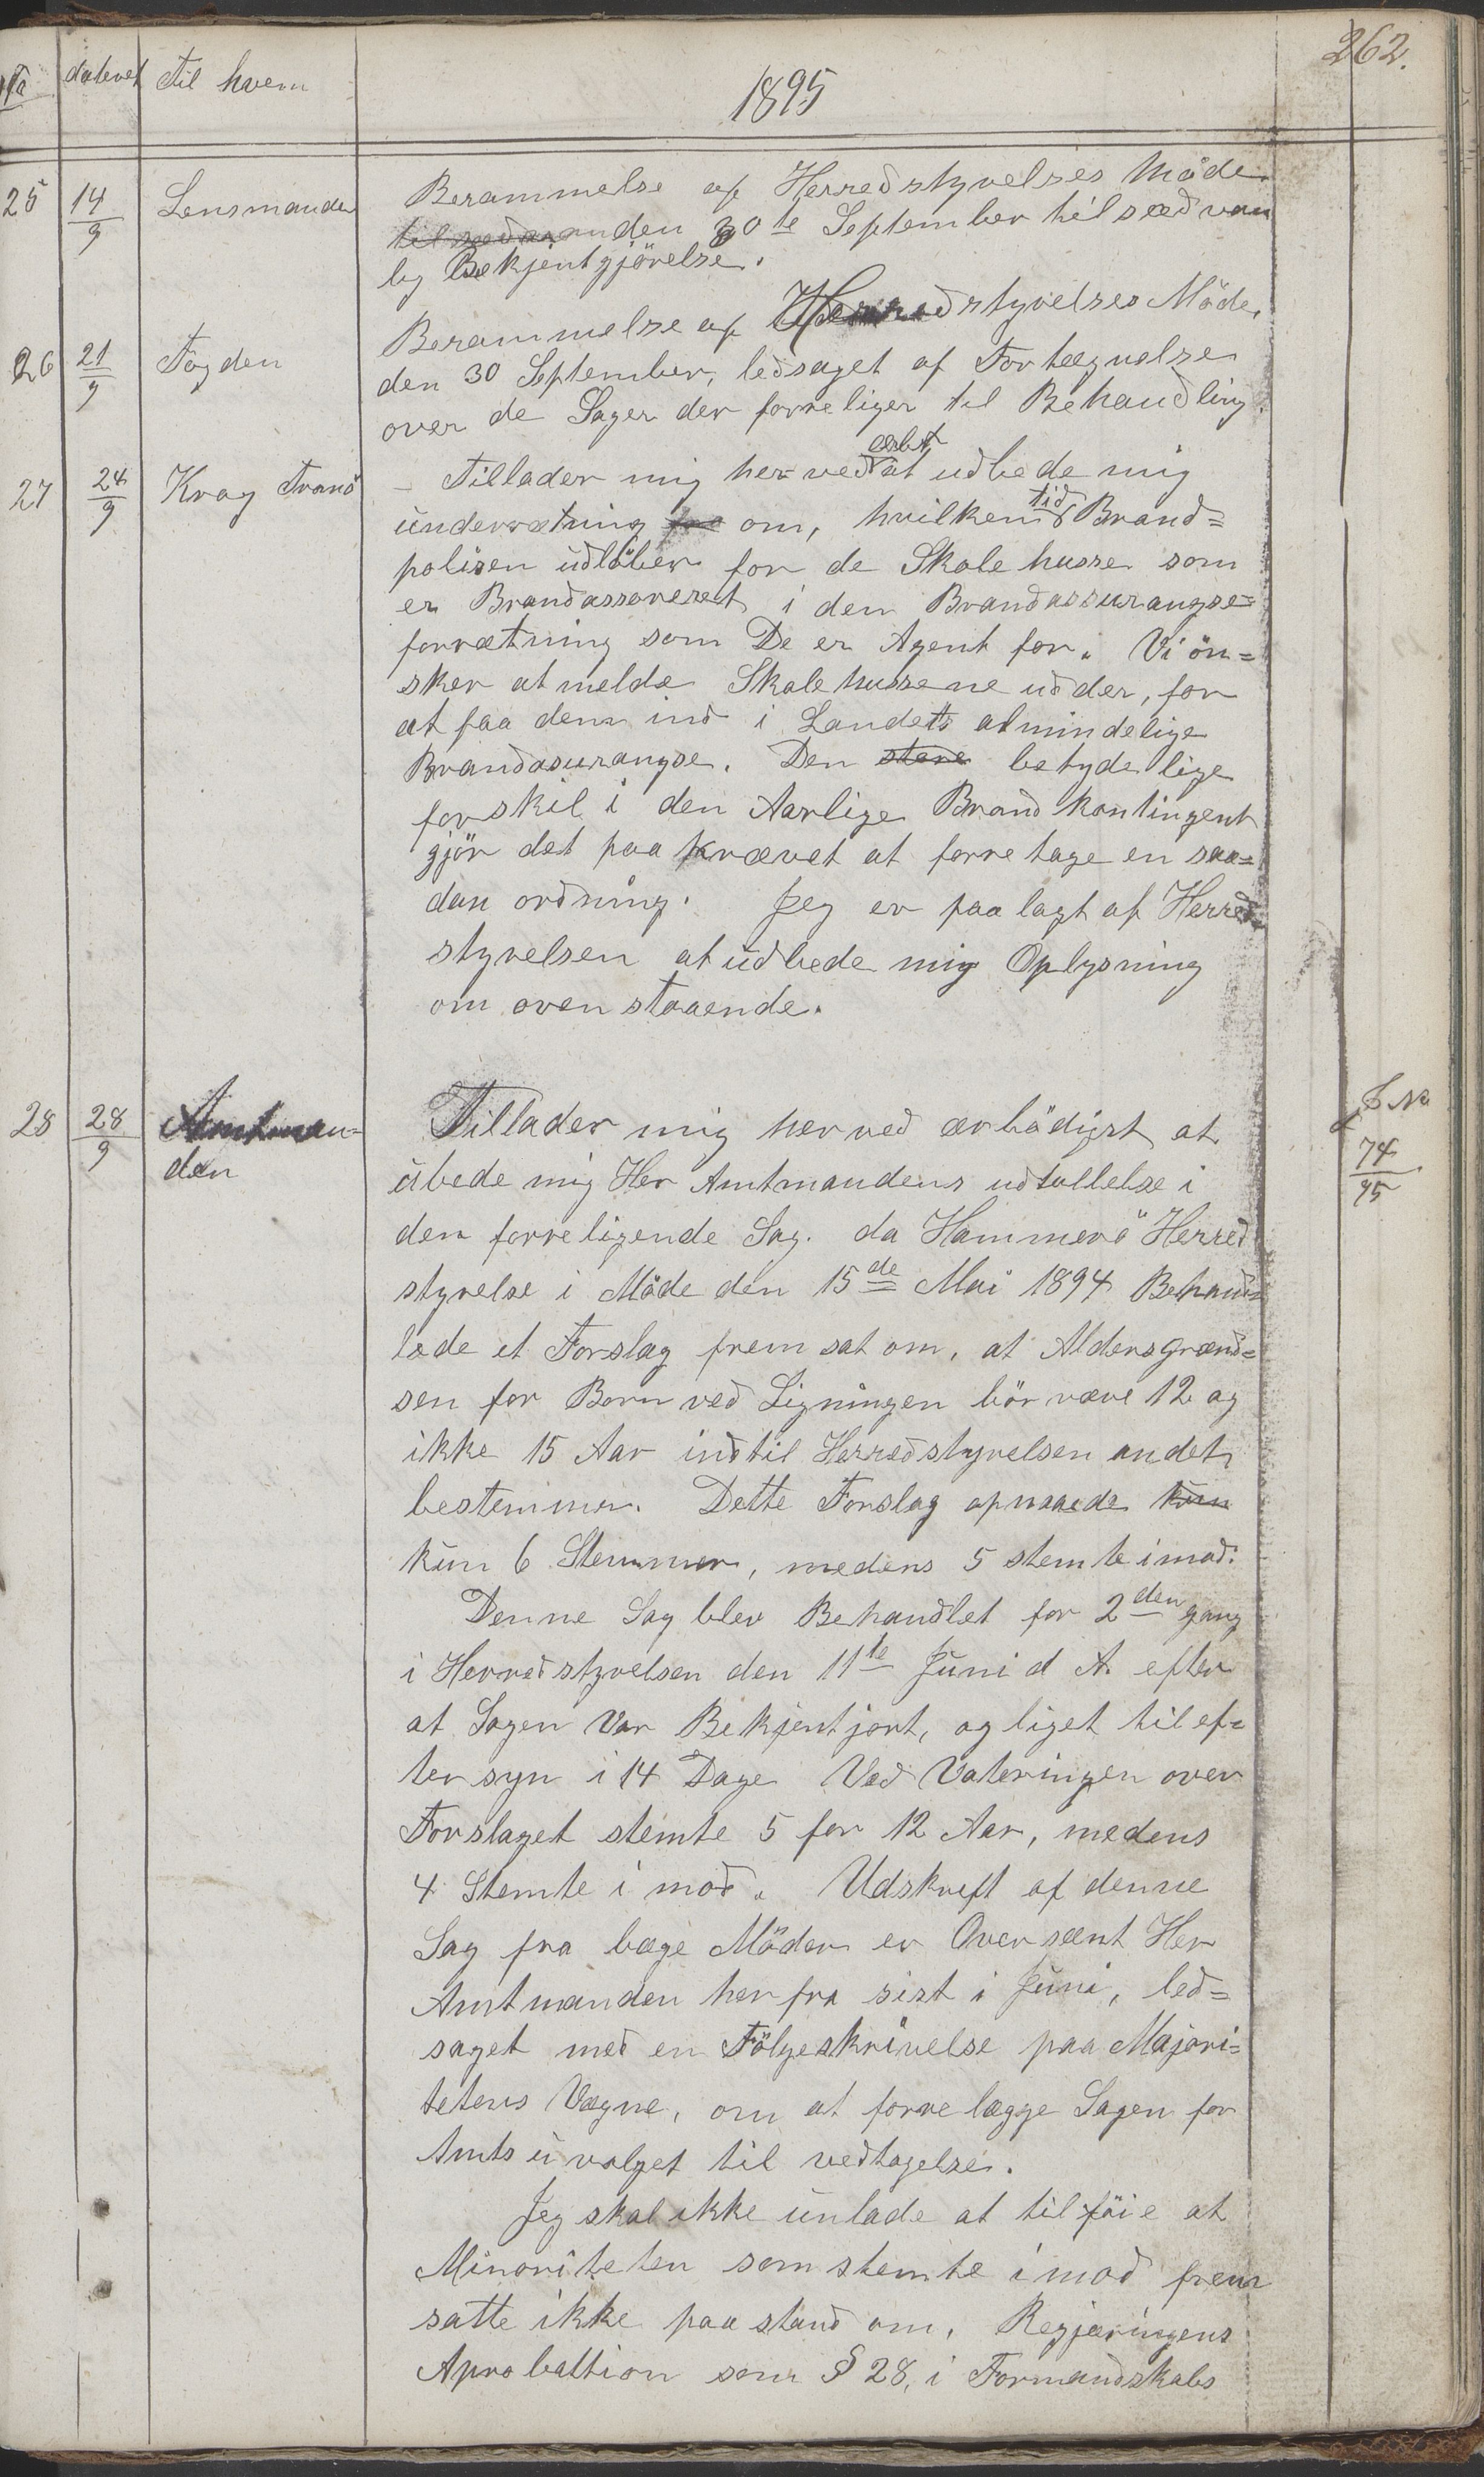 262.
No dateret Til hvem
1895
25 14/9 Lensmanden Berammelse af Herredstyrelses Möde
til sedvan den 30te September til sædvan
lig Bekjentgjörelse.
26 21/9 Fogden Berammelse af Herredstyrelses Möde,
den 30 September, ledsaget af Fortegnelse
over de Sager der forreliger til Behandling.
27 24/9 Krog Tranö – Tillader mig herved ærbt at udbede mig
underretning fra om, hvilken tid Brand=
polisen udlöber for de Skole husse som
er Brandassoreret i den Brandassurangse=
forretning som De er Agent for. Vi ön=
sker at melde Skolehussene ud der, for
at faa dem ind i Landets almindelige
Brandasurangse. Den store betydelige
forskil i den Aarlige Brand kontingent
gjör det paa krævet at forretage en saa=
dan ordning. Jeg er paa lagt af Herred
styrelsen at udbede mig Oplysning
om oven staaende.
28 28/9 Amtman=
den
Tillader mig herved ærbödigst at
J No
74/95
ubede mig Her Amtmandens udtallelse i
den forreligende Sag. da Hammerö Herred
styrelse i Möde den 15de Mai 1894 Behand
lede et Forslag frem sat om, at Aldersgrænd=
sen for Born ved Ligningen bör være 12 og
ikke 15 Aar indtil Herredstyrelsen andet
bestemmer. Dette Forslag opnaaede kun
kun 6 Stemmer, medens 5 stemte imod.
Denne Sag blev Behandlet for 2den gang
i Herredstyrelsen den 11te Juni d A. efter
at Sagen Var Bekjentjort, og liget til ef=
tersyn i 14 Dage Ved Vateringen over
Forslaget stemte 5 for 12 Aar, medens
4 Stemte i mod. Udskreft af denne
Sag fra bæge Möder er Over sænt Her
Amtmanden her fra sist i Juni, led=
saget med en Fölgeskrivelse paa Majori=
tetens Vægne, om at forre lægge Sagen for
Amts uvalget til vedtagelse.
Jeg skal ikke unlade at tilföie at
Minoriteten som stemte imod frem
satte ikke paa stand om, Regjæringens
Aprobattion som § 28, i Formandskabs